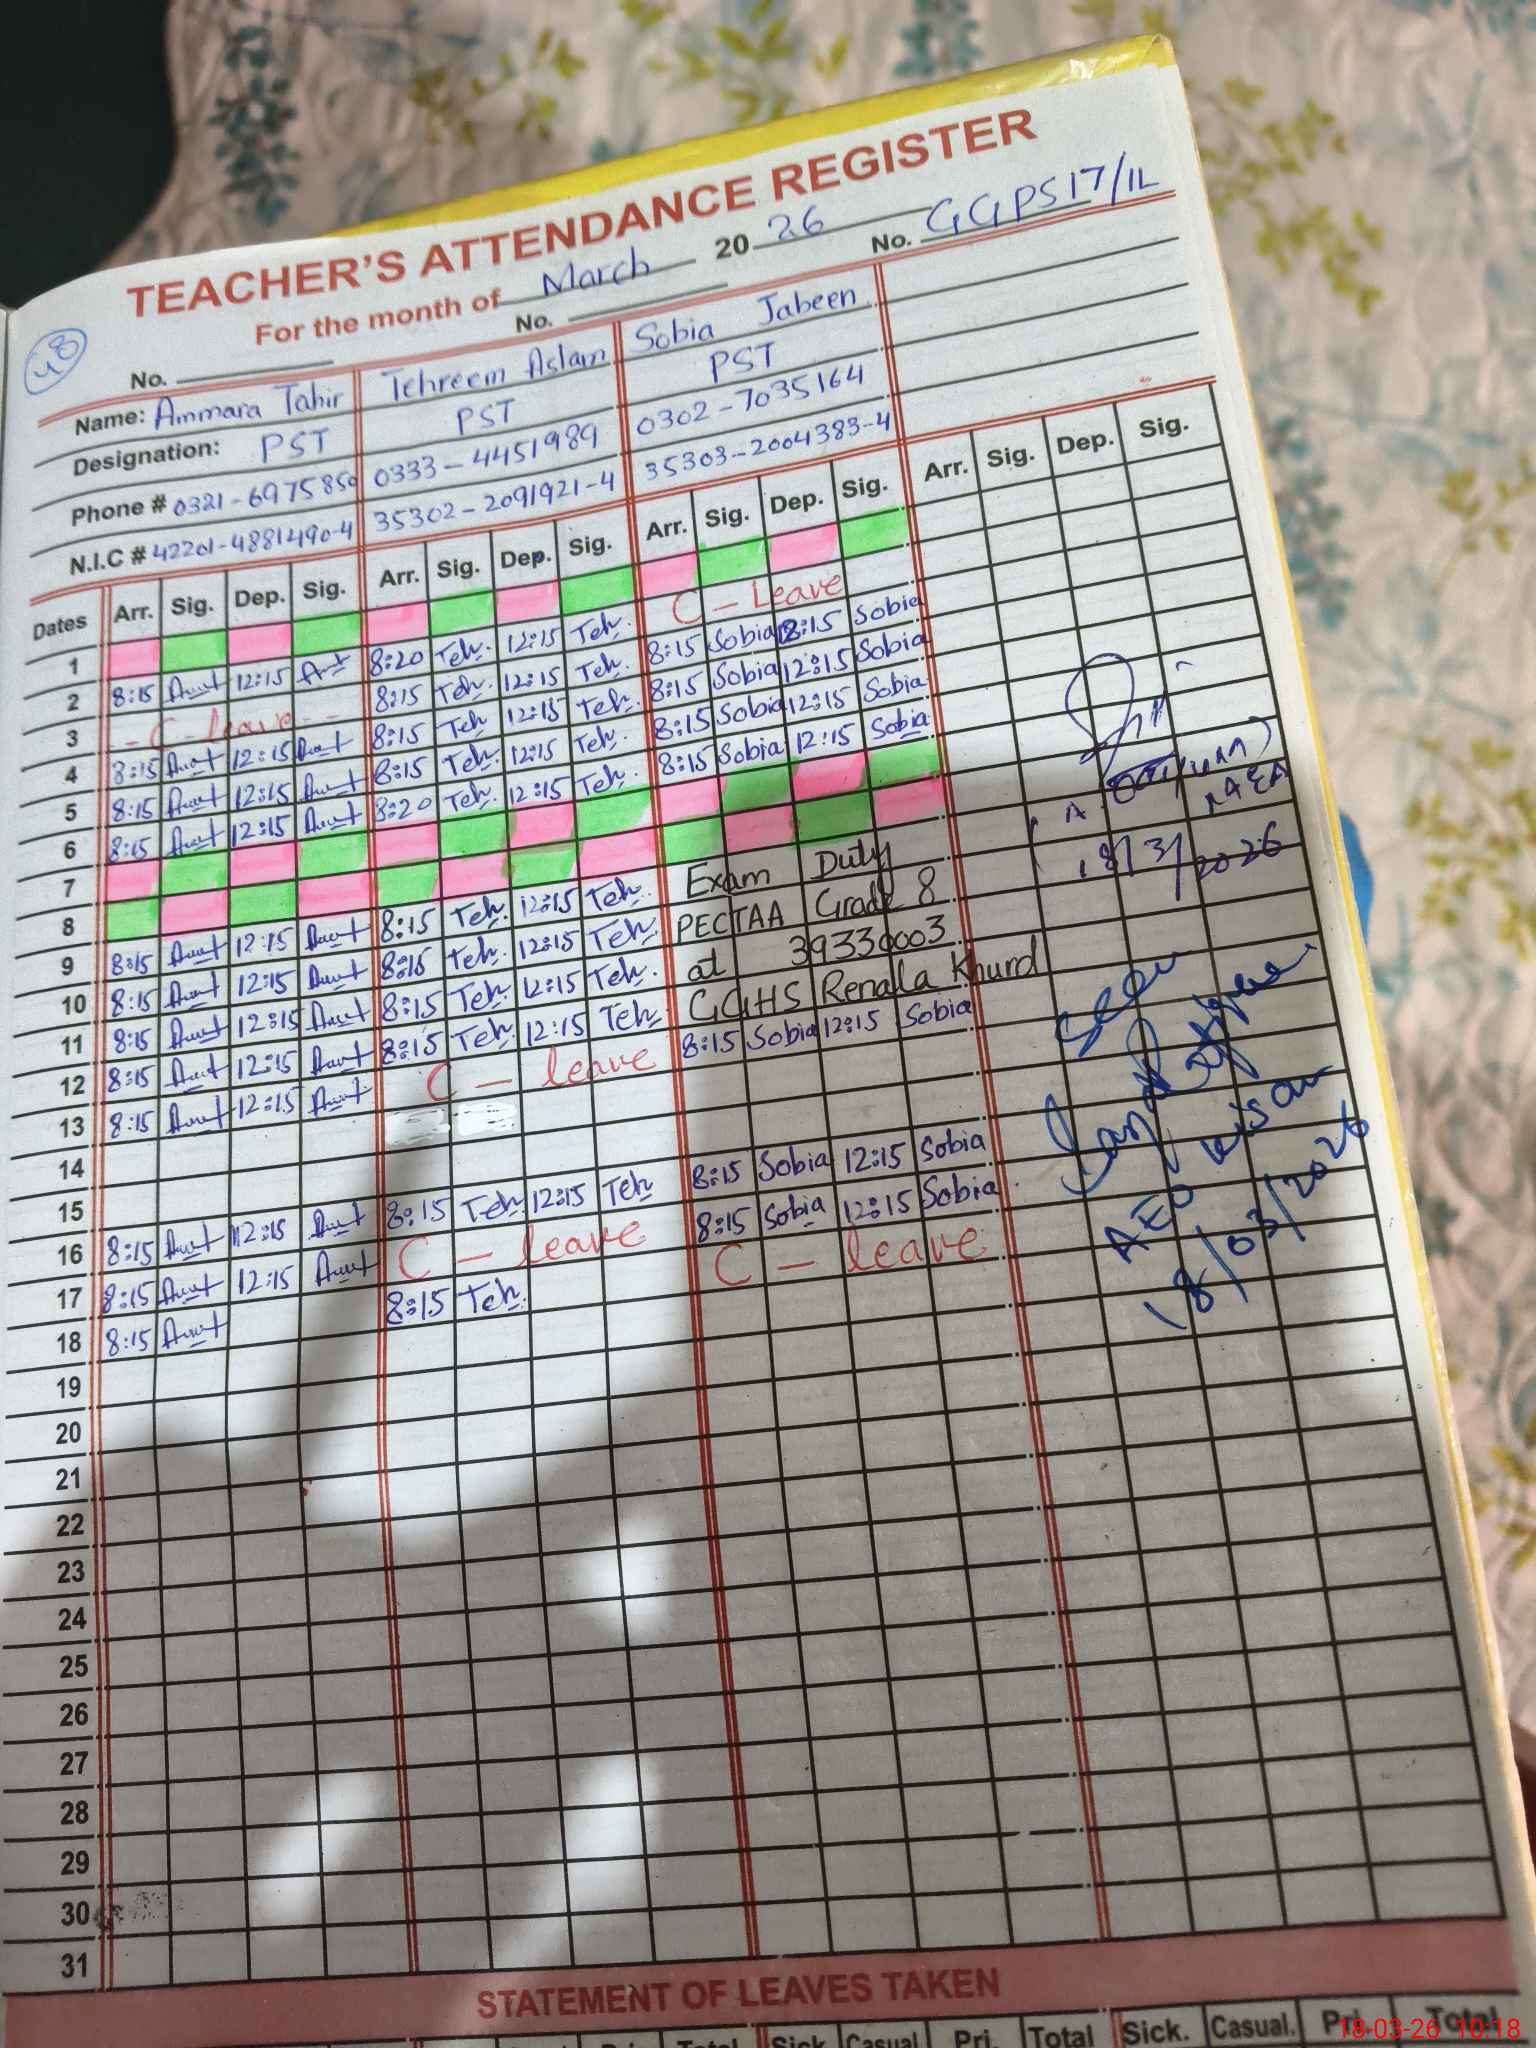 TEACHER'S ATTENDANCE REGISTER
For the month of March 2026 No. GGPS 17/1L
48
No. No.
Name: Ammara Tahir Tehreem Aslam Sobia Jabeen
Designation: PST PST PST
Phone # 0321-6975850 0333-4451989 0302-7035164
N.I.C # 42201-4881490-4 35302-2091921-4 35303-2004383-4
Dates Arr. Sig. Dep. Sig. Arr. Sig. Dep. Sig. Arr. Sig. Dep. Sig. Arr. Sig. Dep. Sig.
1
2 8:15 12:15 8:20 Teh. 12:15 Teh. C - Leave
3 - C - leave - - 8:15 Teh. 12:15 Teh. 8:15 Sobia 12:15 Sobia
4 8:15 12:15 8:15 Teh 12:15 Teh. 8:15 Sobia 12:15 Sobia
5 8:15 12:15 8:15 Teh. 12:15 Teh. 8:15 Sobia 12:15 Sobia
6 8:15 12:15 8:20 Teh. 12:15 Teh. 8:15 Sobia 12:15 Sobia
7
8
9 8:15 12:15 8:15 Teh. 12:15 Teh. Exam Duty
10 8:15 12:15 8:15 Teh. 12:15 Teh. PECTAA Grade 8
11 8:15 12:15 8:15 Teh. 12:15 Teh. at 39330003
12 8:15 12:15 8:15 Teh. 12:15 Teh. GGHS Renala Khurd
13 8:15 12:15 C - leave 8:15 Sobia 12:15 Sobia
14
15
16 8:15 12:15 8:15 Teh. 12:15 Teh 8:15 Sobia 12:15 Sobia
17 8:15 12:15 C - leave 8:15 Sobia 12:15 Sobia
18 8:15 8:15 Teh. C - leave
19
20
21
22
23
24
25
26
27
28
29
30
31
18/3/2026
Seen
AEO
18/03/2026
STATEMENT OF LEAVES TAKEN
Total Sick Casual Pri. Total Sick. Casual. Pri. Total
18-03-26 10:18